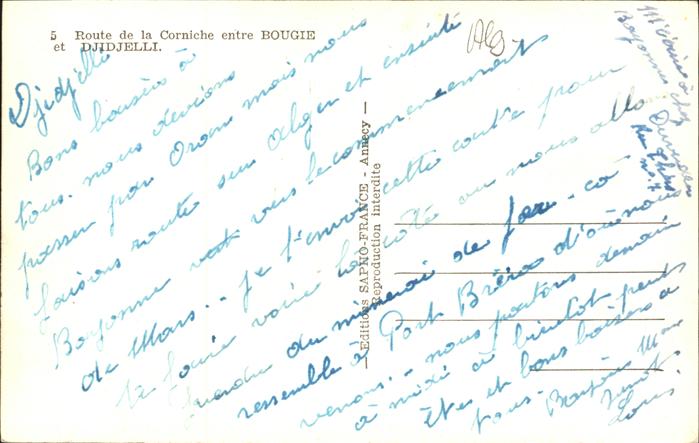 5 Route de la Corniche entre BOUGIE
et DJIDJELLI.
Alg
Djidjelli
Bons baisers à
tous. nous devions
passer par Oran mais nous
faisons route sur Alger et ensuite
Bayonne vers le commencement
de Mars. - Je t'envoie cette carte pour
te faire voir la côte ou nous allons
du minerai de fer - ça
ressemble à Port d'où nous
venons. - nous partons demain
à midi à bientôt peut
être et bons baisers à
tous - Bonjour
Louis.
M'écrire à
Bayonne chez
Rue
no 7
— Editions SAPNO-FRANCE - Annecy —
Reproduction Interdite